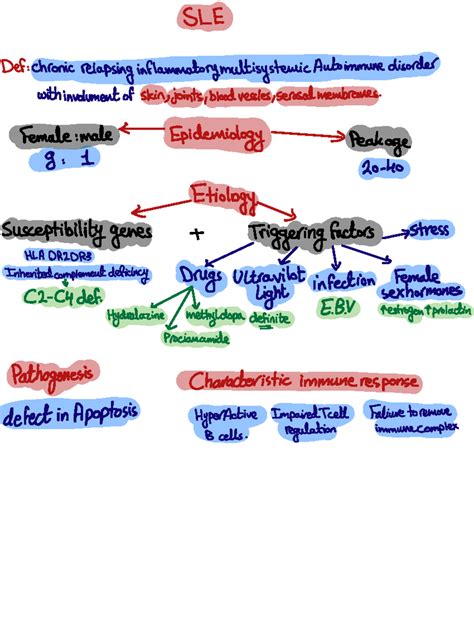 SLE
Def: chronic relapsing inflammatory multisystemic Autoimmune disorder
with involument of skin, joints, blood vesles, serosal membranes.
Female: male Epidemiology Peak age
9: 1 20-40
Etiology
Susceptibility genes + Triggering factors stress
HLA DR2DR3
Inherited complement deficincy
C2-C4 def.
Drugs Ultraviolt infection Female
Light E.B.V sexhormones
Hydralazine methyldopa definite ↑estrogen ↑prolactin
Procianamide
Pathogenesis Characteristic immune response
defect in Apoptosis HyperActive Impaired Tcell Faliure to remove
B cells. regulation immune complex